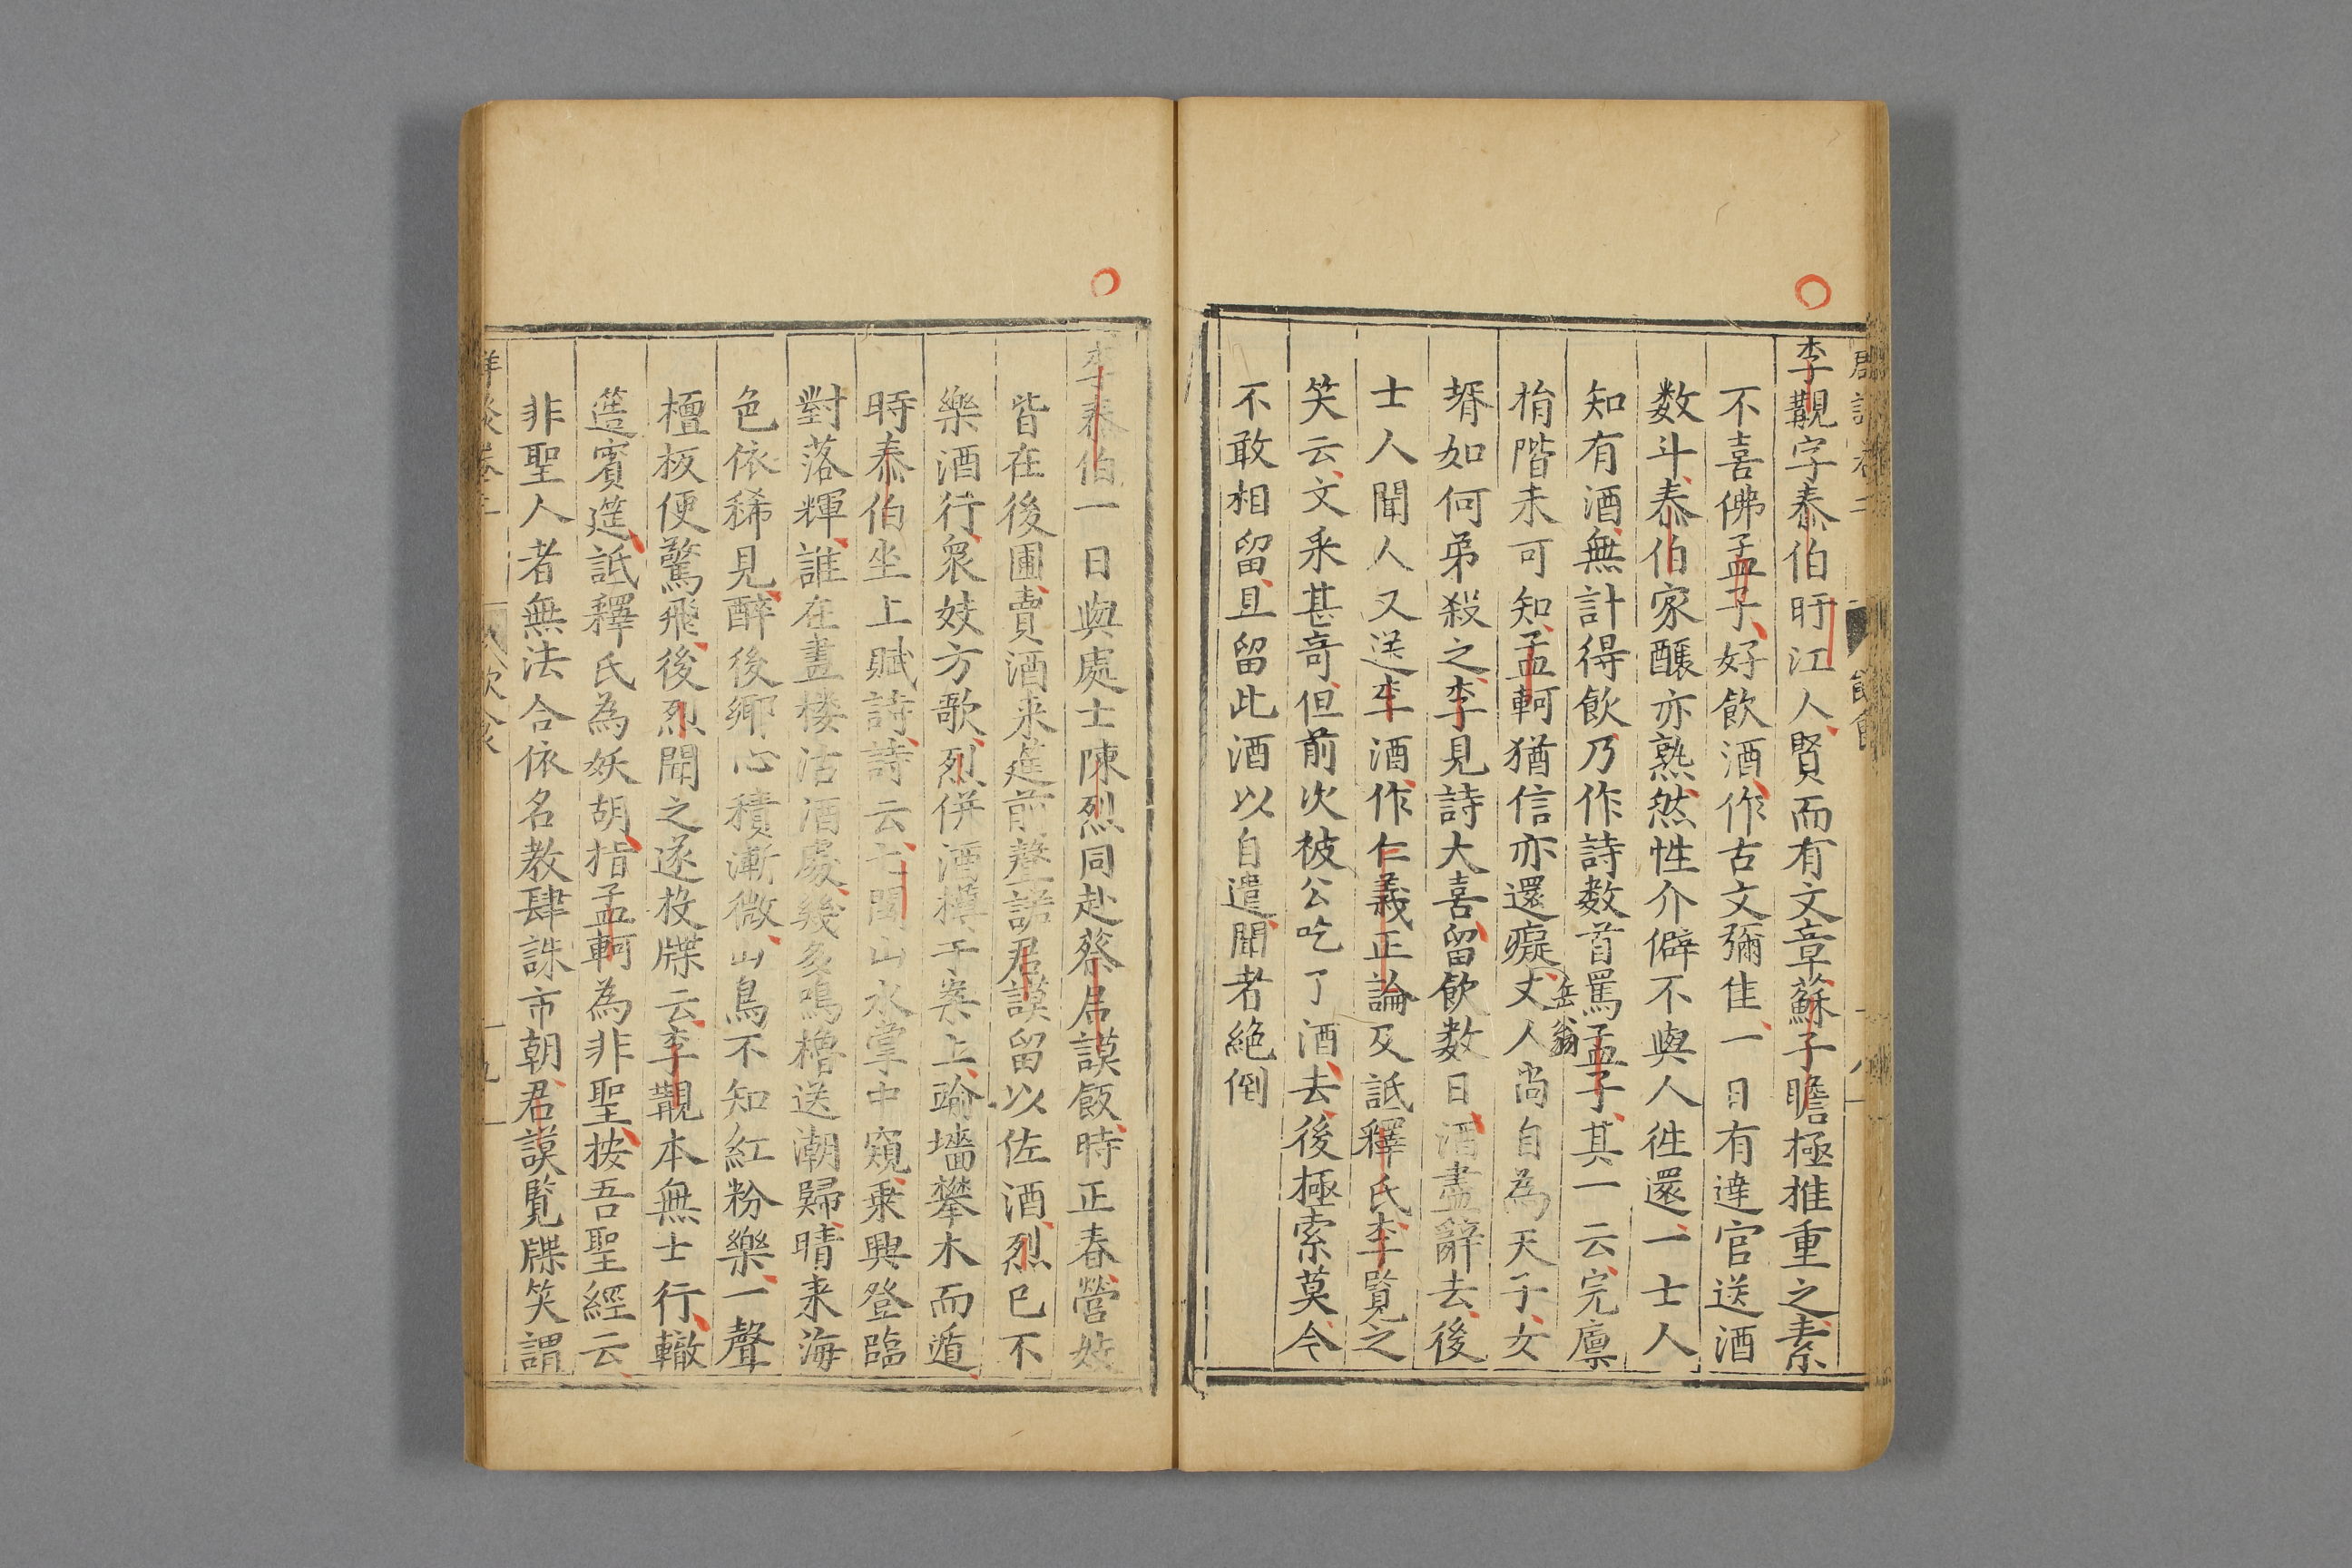 李覯字泰伯盱江人賢而有文章蘇子瞻極推重之素
不喜佛孟子好飲酒作古文彌佳一日有達官送酒
数斗泰伯家釀亦熟然性介僻不與人徃還一士人
知有酒無計得飲乃作詩数首罵孟子其一云完廩
岳翁
捐階未可知孟軻猶信亦還癡丈人尚自為天子女
壻如何弟殺之李見詩大喜留飲数日酒盡辭去後
士人聞人又送李酒作仁義正論及詆釋氏李覧之
笑云文采甚奇但前次被公吃了酒去後極索莫今
不敢相留且留此酒以自遣聞者絶倒
李泰伯一日與處士陳烈同赴蔡君謨飯時正春營妓
皆在後圃賣酒来筵前聲諾君謨留以佐酒烈已不
樂酒行衆妓方歌烈併酒擲于案上踰墻攀木而遁
時泰伯坐上賦詩詩云七閩山水掌中窺乗興登臨
對落輝誰在畫楼沽酒處幾多鳴櫓送潮歸晴来海
色依稀見醉後鄉心積漸微山鳥不知紅粉樂一聲
檀板便驚飛後烈聞之遂投牒云李覯本無士行輙
簉賓筵詆釋氏為妖胡指孟軻為非聖按吾聖經云
非聖人者無法合依名教肆誅市朝君謨覧牒笑謂